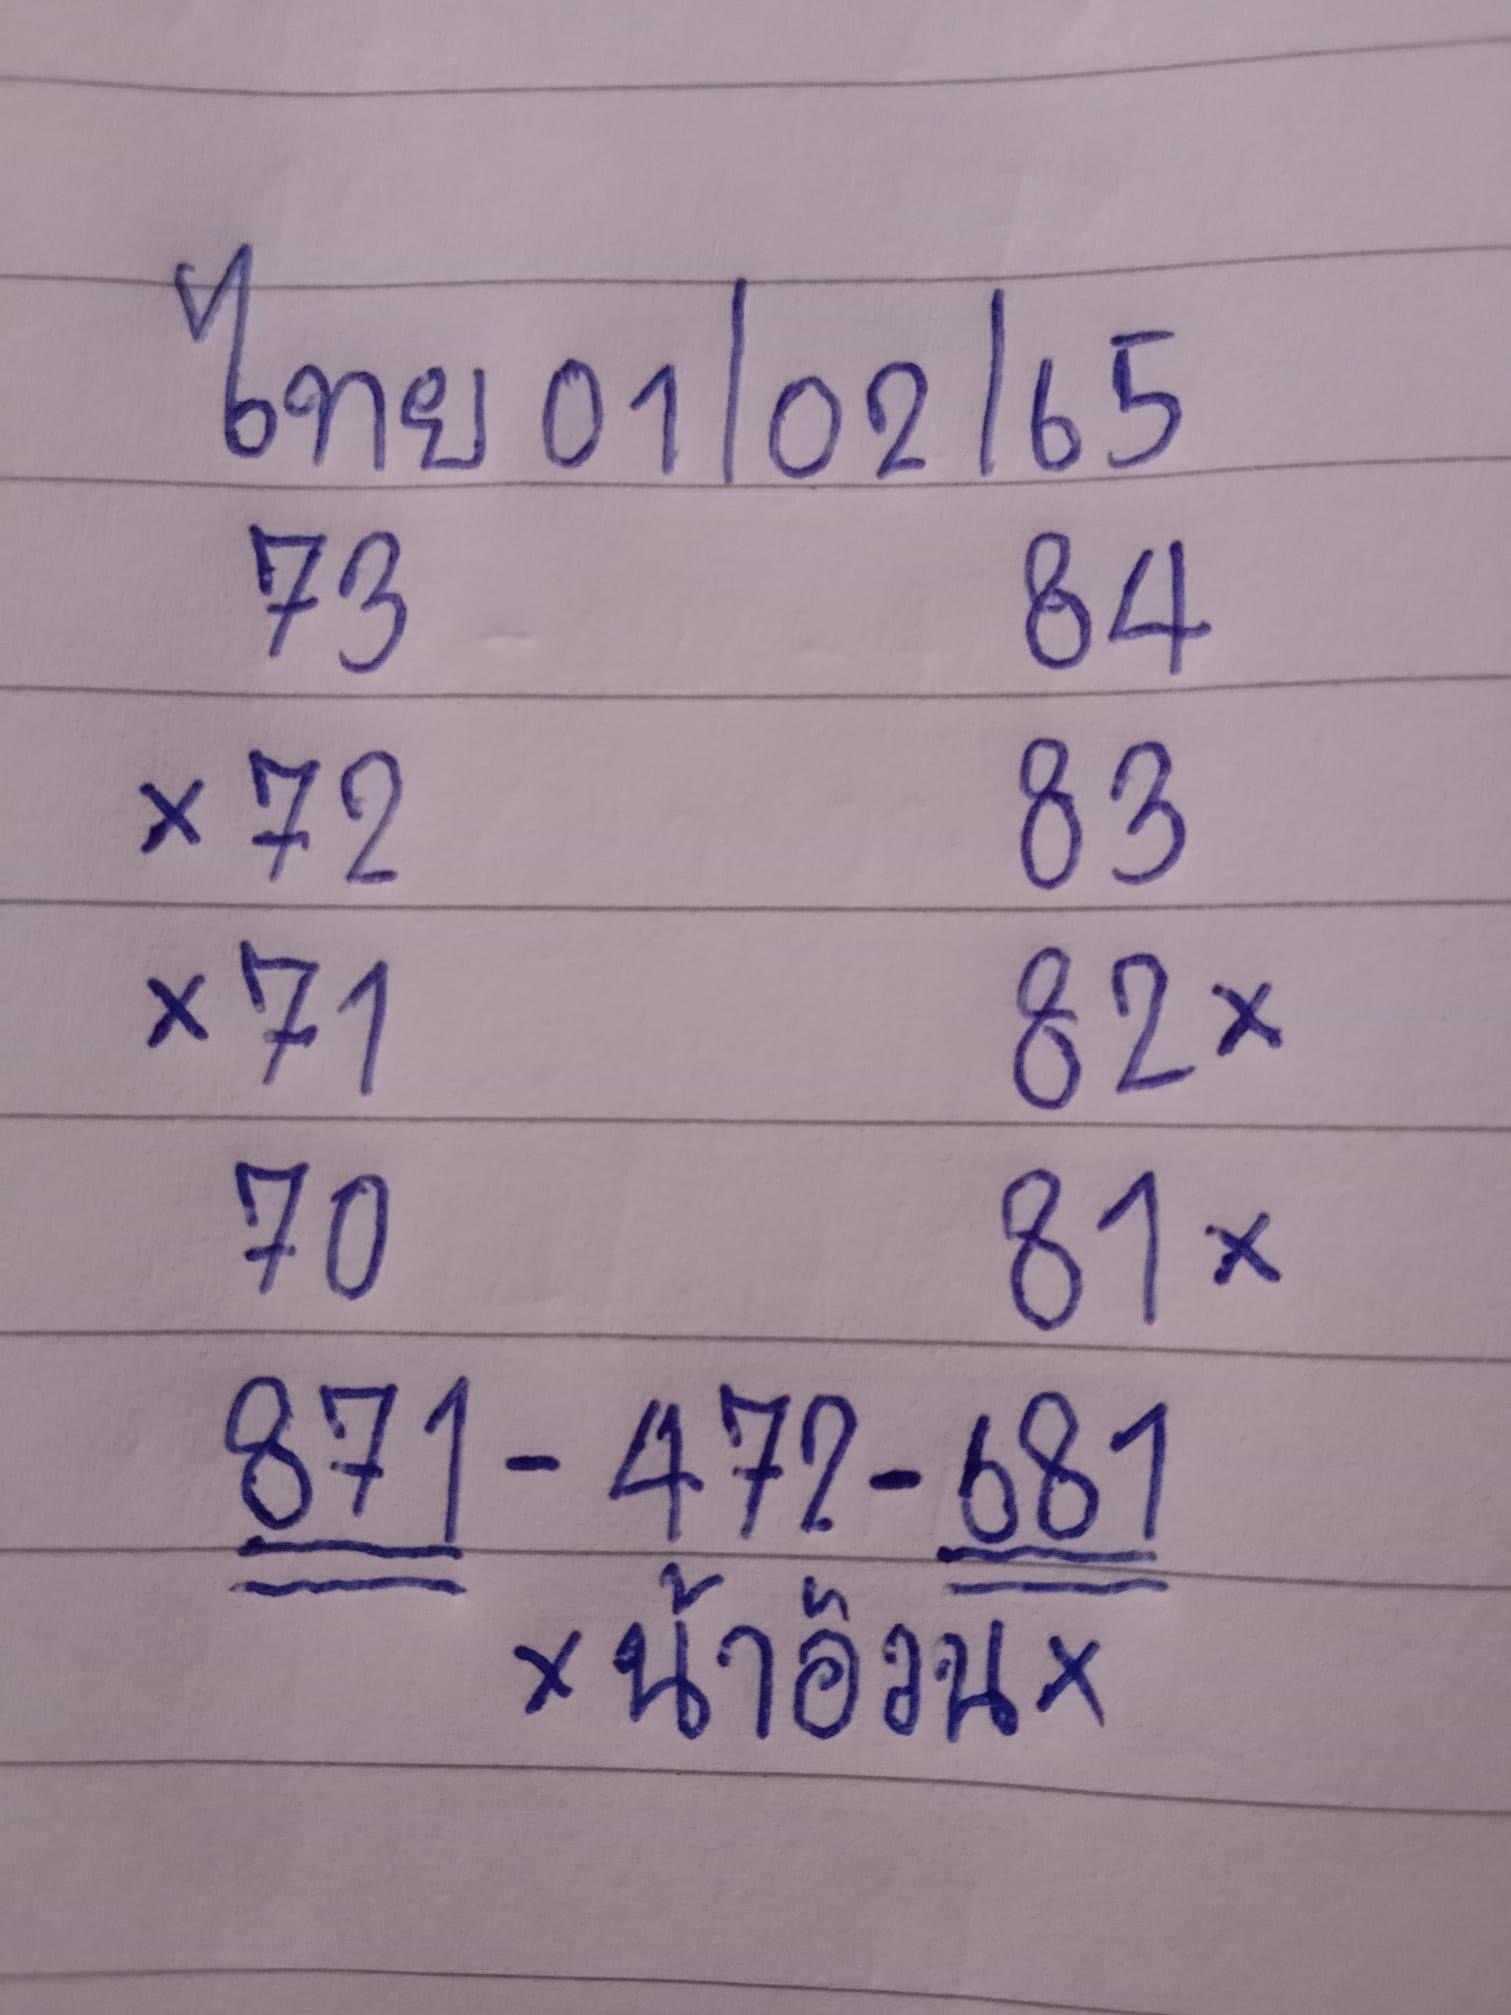 ไทย 01/02/65
73 84
x 72 83
x 71 82 x
70 81 x
871 - 472 - 681
x น้าอ้วน x